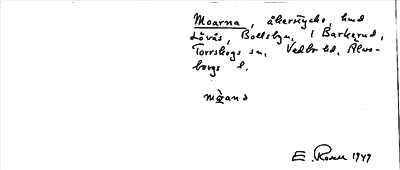 Moarna, åkerstycke, hmd
Lövås, Bollsbyn, i Barkerud,
Torrskogs sn, Vedbo hd, Älvs-
borgs l.
mòana
E. Rosell 1949